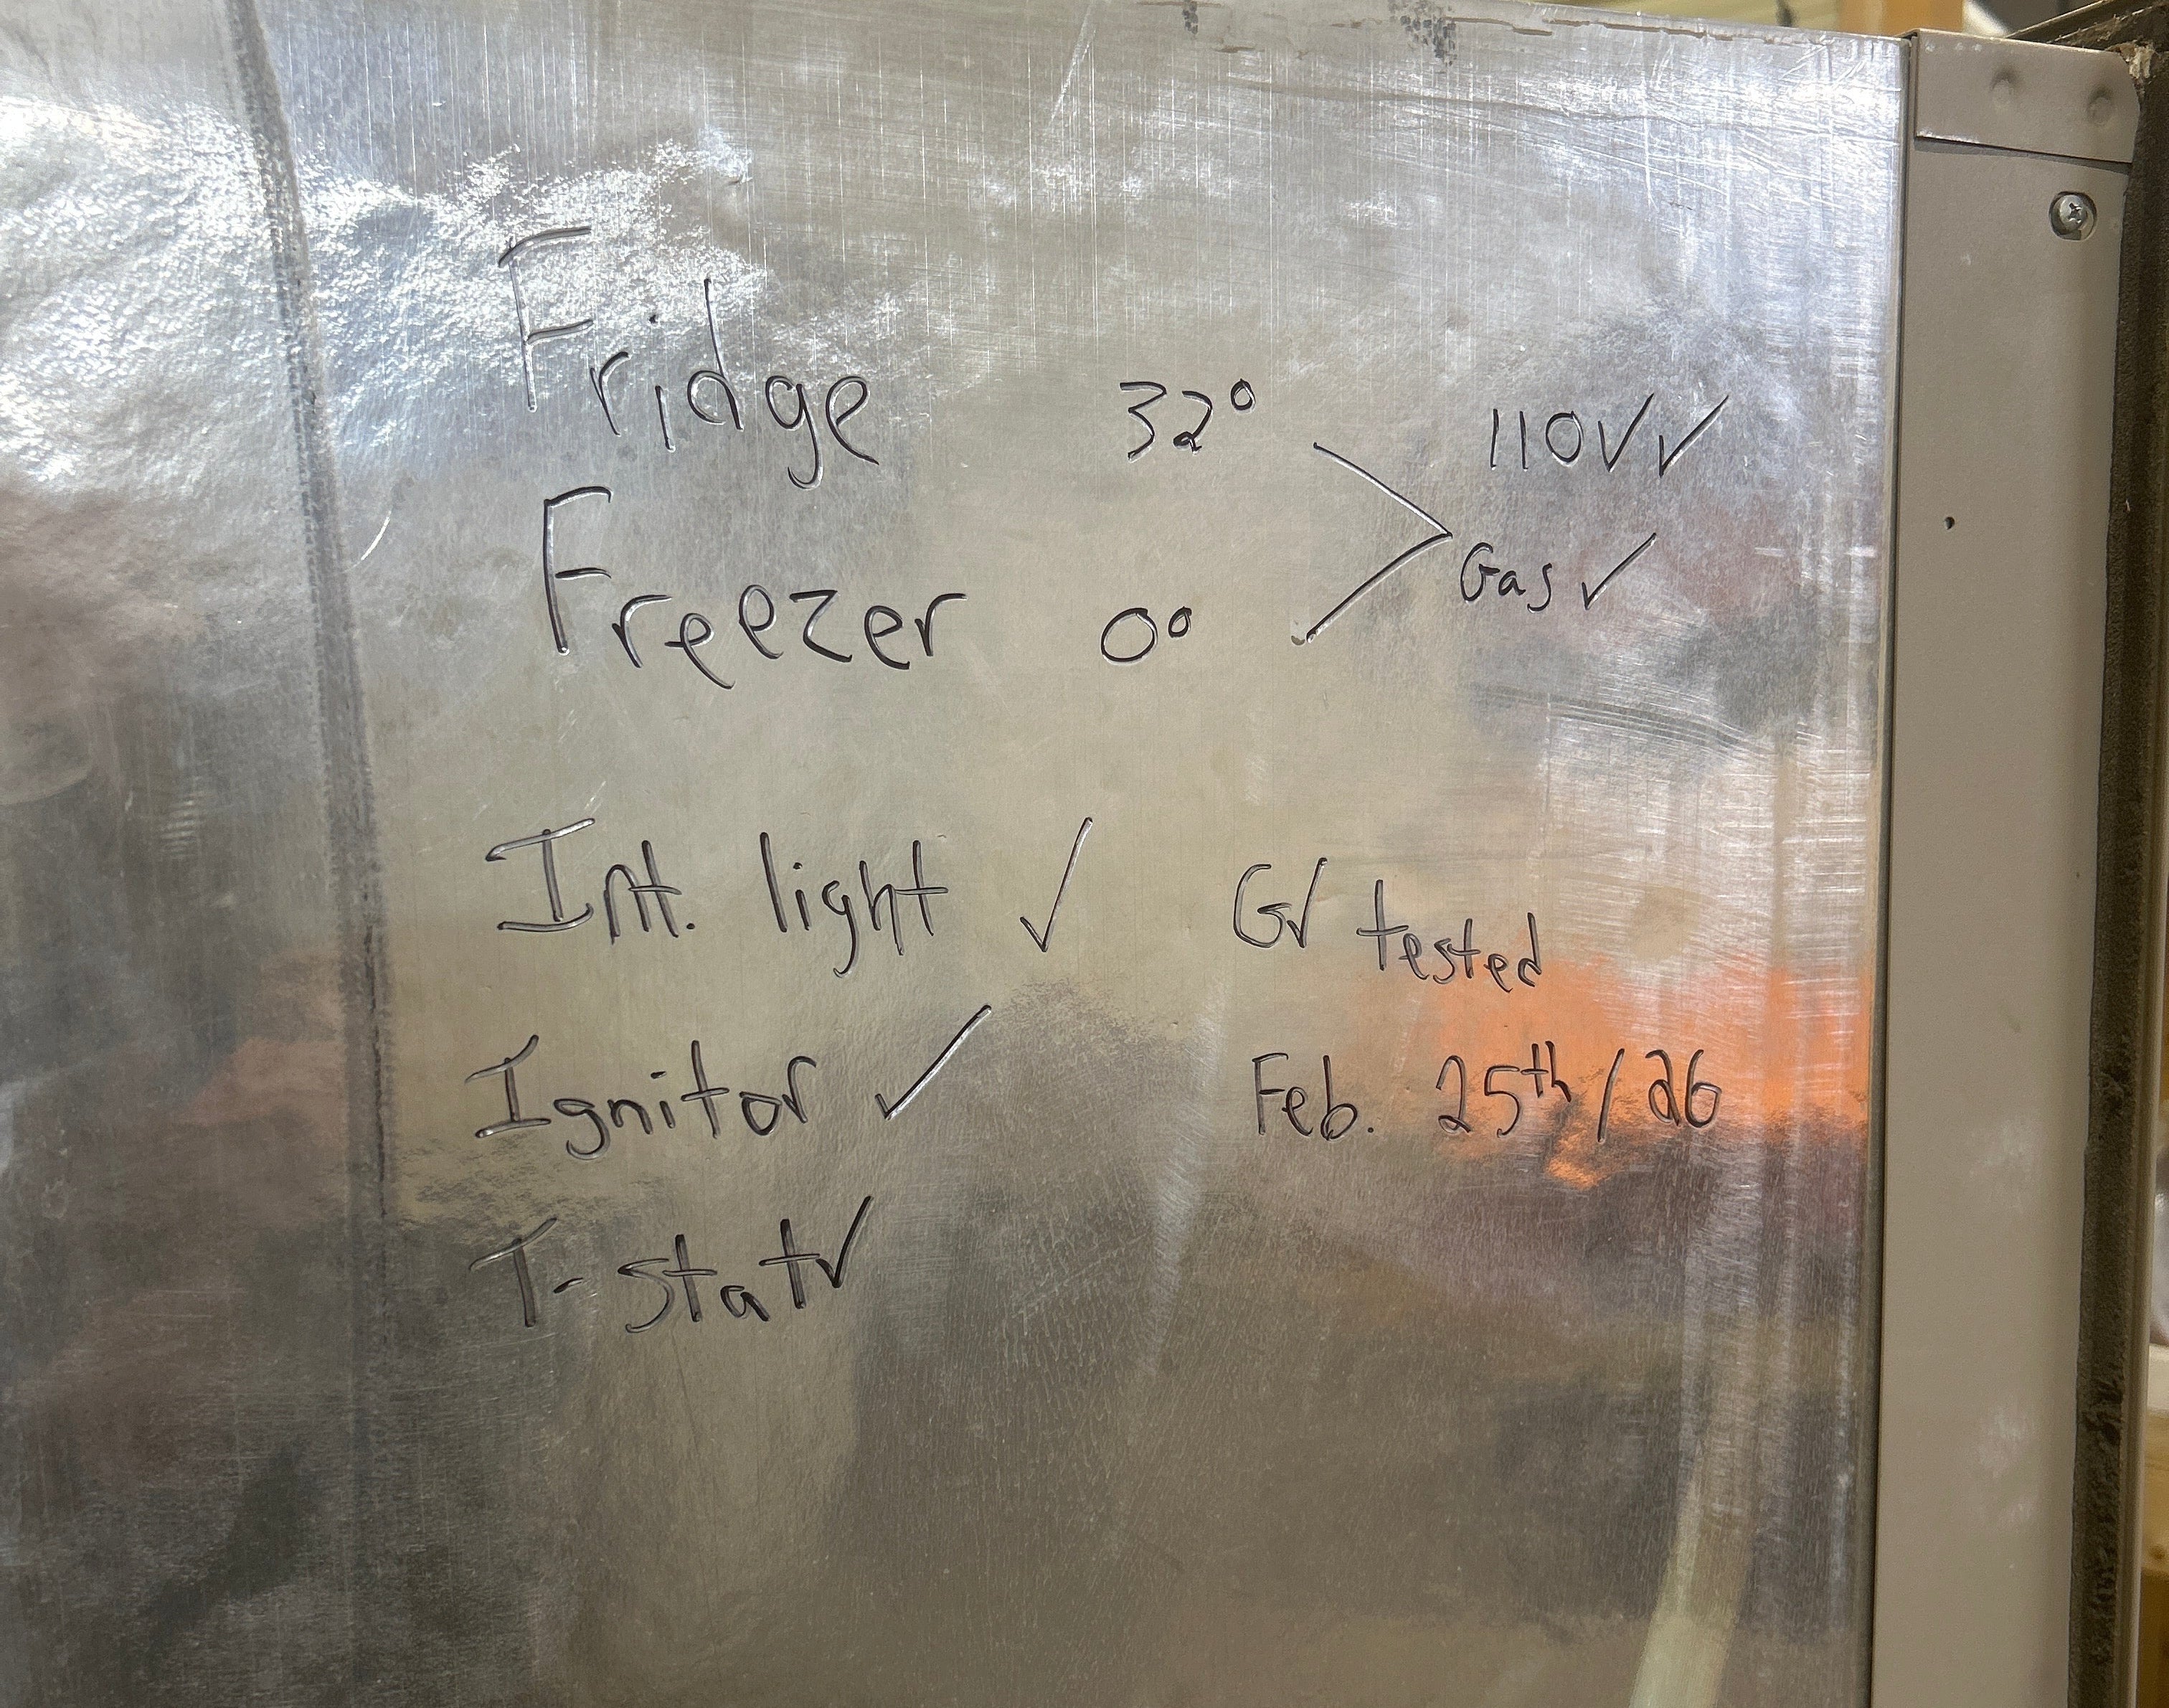 Fridge 32° 110V ✓
Freezer 0° Gas ✓
Int. light ✓ GV tested
Ignitor ✓ Feb. 25th/26
T-stat ✓